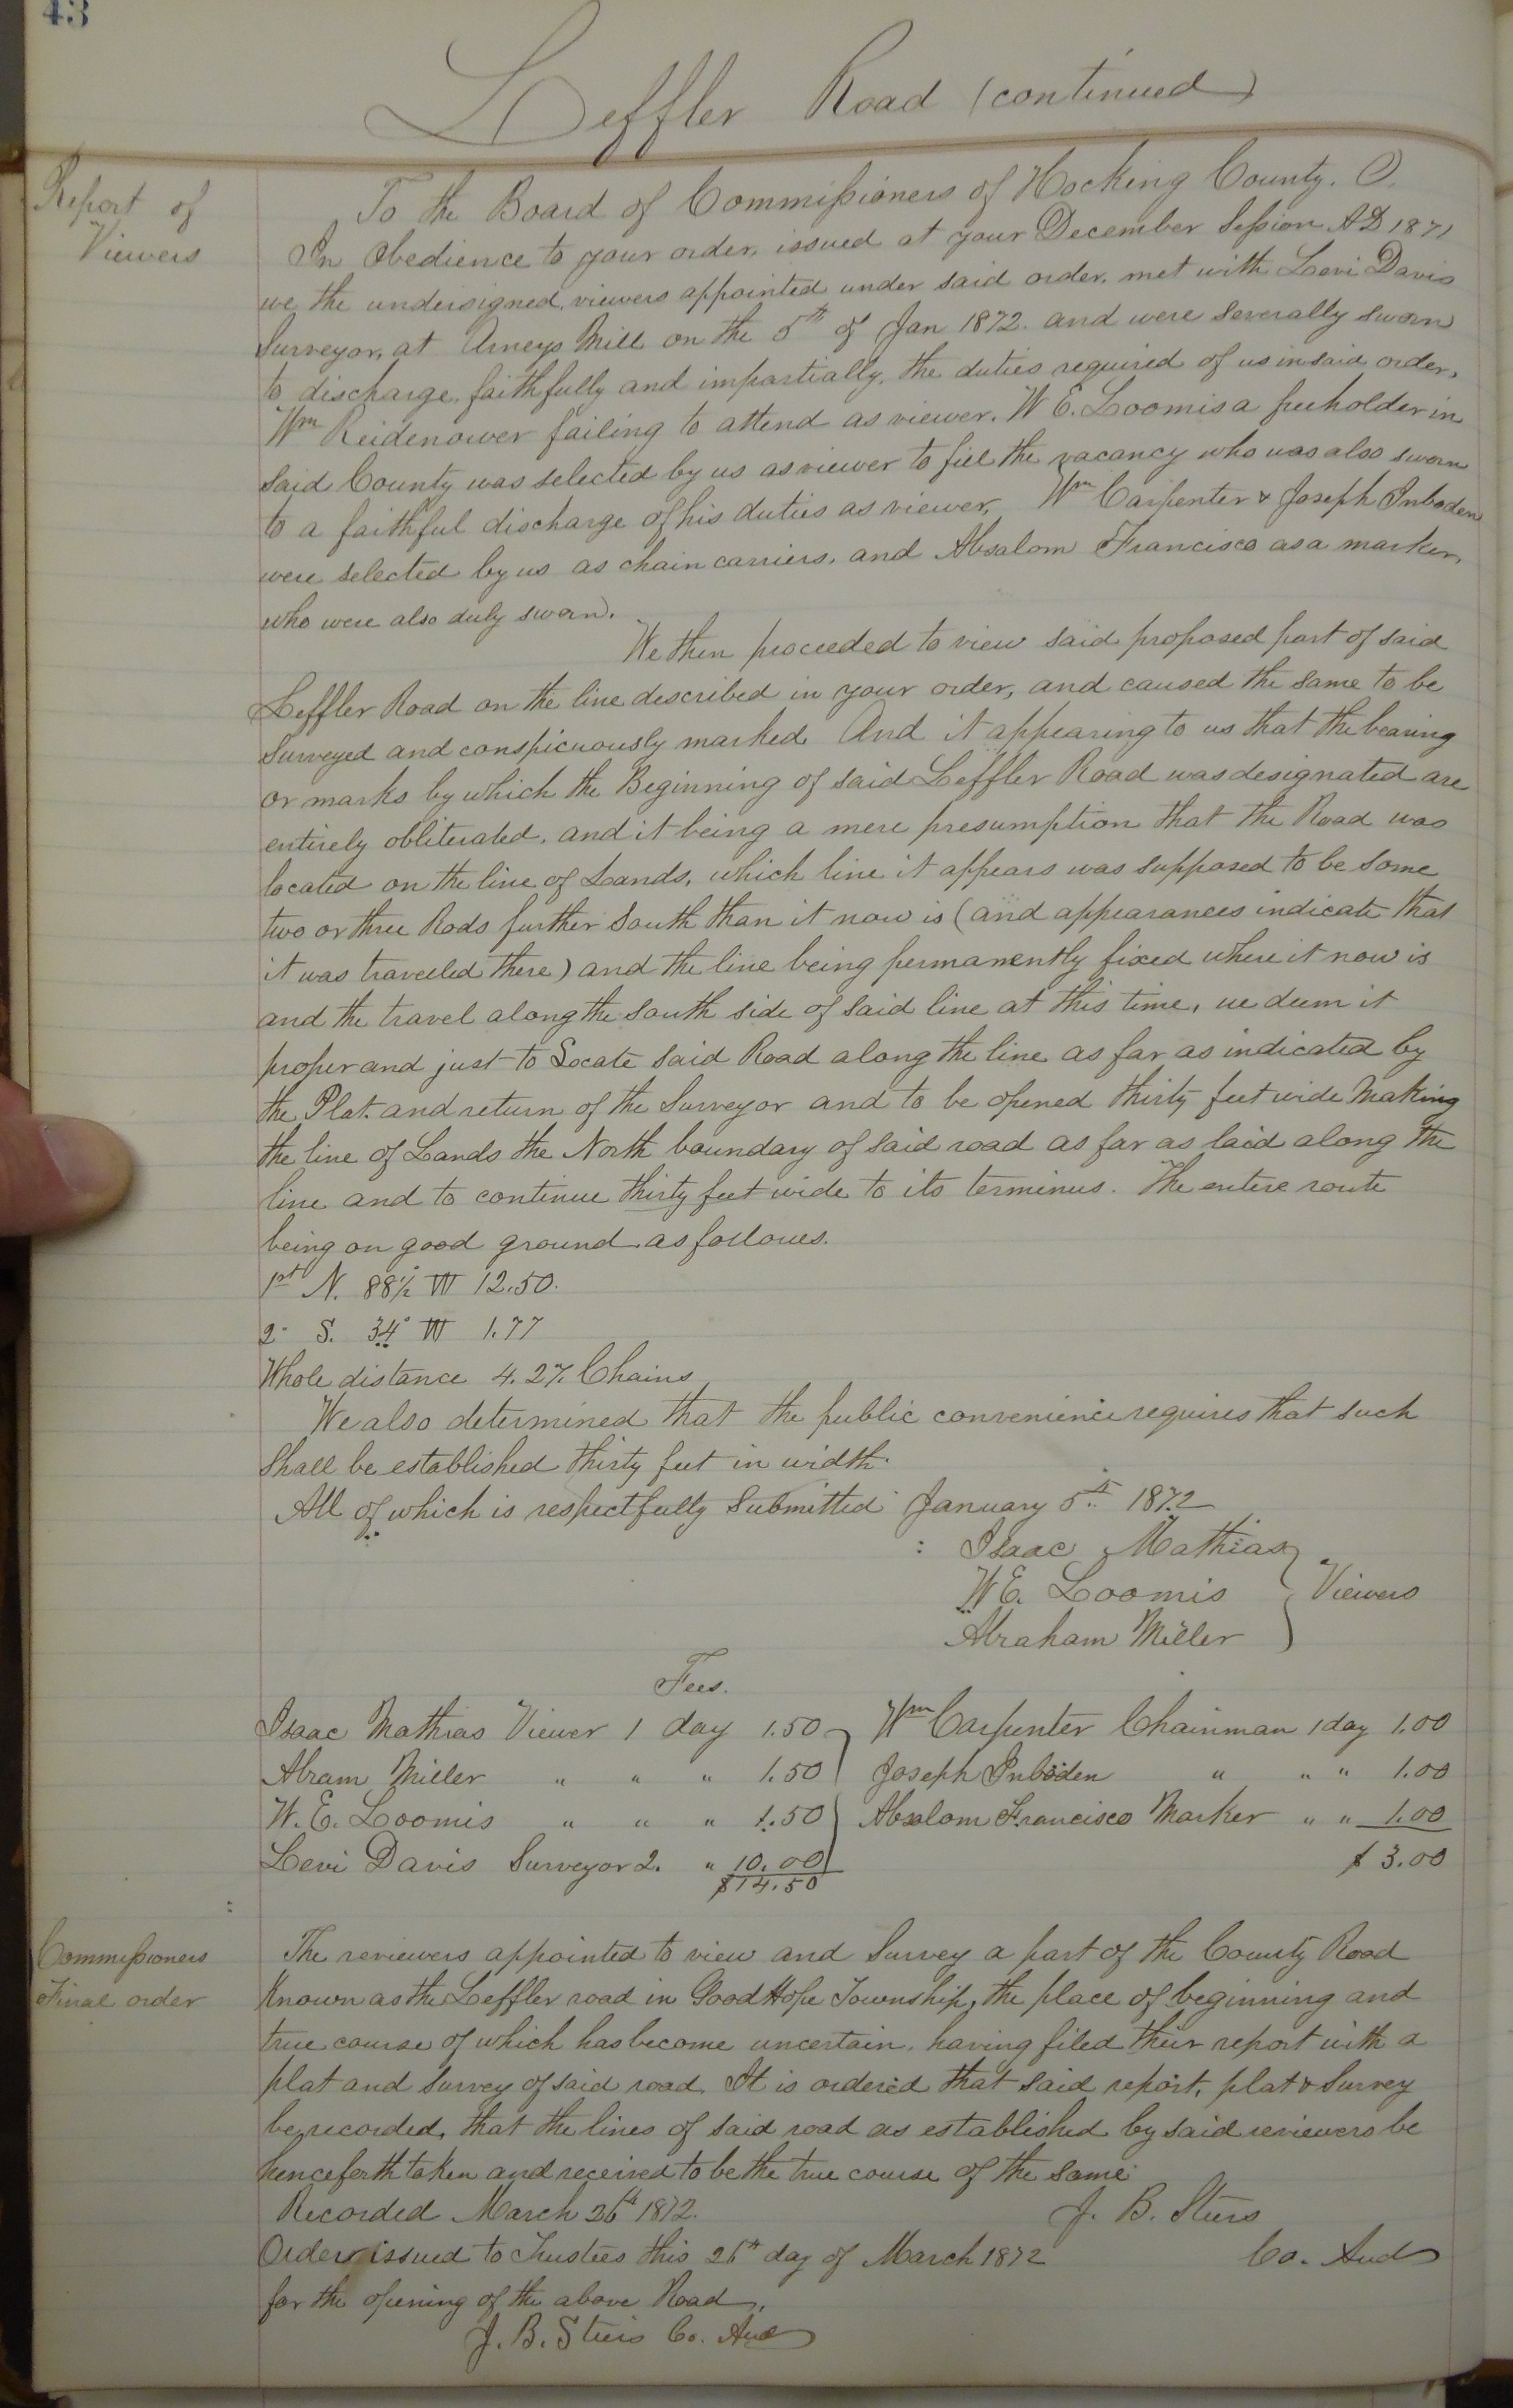 43
Leffler Road (continued)
Report of
Viewers
To the Board of Commissioners of Hocking County. O.
In Obedience to your order, issued at your December Session AD 1871
we the undersigned, viewers appointed under said order, met with Levi Davis
Surveyor, at Arneys Mill on the 5th of Jan 1872. and were severally sworn
to discharge, faithfully and impartially, the duties required of us in said order,
Wm Reidenower failing to attend as viewer. W E. Loomis a freeholder in
said County was selected by us as viewer to fill the vacancy who was also sworn
to a faithful discharge of his duties as viewer, Wm Carpenter & Joseph Inboden
were selected by us as chain carriers, and Absalom Francisco as a marker,
who were also duly sworn.
We then proceeded to view said proposed part of said
Leffler Road on the line described in your order, and caused the same to be
Surveyed and conspicuously marked. And it appearing to us that the bearing
or marks by which the Beginning of said Leffler Road was designated are
entirely obliterated, and it being a mere presumption that the Road was
located on the line of Lands, which line it appears was supposed to be some
two or three Rods further South than it now is (and appearances indicate that
it was travelled there) and the line being permanently fixed where it now is
and the travel along the south side of said line at this time, we deem it
proper and just to Locate said Road along the line as far as indicated by
the Plat. and return of the Surveyor and to be opened thirty feet wide Making
the line of Lands the North boundary of said road as far as laid along the
line and to continue thirty feet wide to its terminus. The entire route
being on good ground as follows.
1st N. 88½° W 12.50.
2" S. 34° W 1.77
Whole distance 4.27. Chains
We also determined that the public convenience requires that such
Shall be established thirty feet in width.
All of which is respectfully Submitted January 5th 1872
Isaac Mathias
W E. Loomis } Viewers
Abraham Miller
Fees.
Isaac Mathias Viewer 1 day 1.50 Wm Carpenter Chainman 1 day 1.00
Abram Miller " " " 1.50 Joseph Inboden " " " 1.00
W. E. Loomis " " " 1.50 Absalom Francisco Marker " " 1.00
Levi Davis Surveyor 2. " 10.00 $ 3.00
$14.50
Commissioners
Final order
The reviewers appointed to view and Survey a part of the County Road
Known as the Leffler road in Good Hope Township, the place of beginning and
true course of which has become uncertain, having filed their report with a
plat and Survey of said road. It is ordered that said report, plat & Survey
be recorded, that the lines of said road as established by said reviewers be
henceforth taken and received to be the true course of the same
Recorded March 26th 1872. J. B. Stiers
Order issued to Trustees this 26th day of March 1872 Co. Aud
for the opening of the above Road,
J. B. Stiers Co. Aud